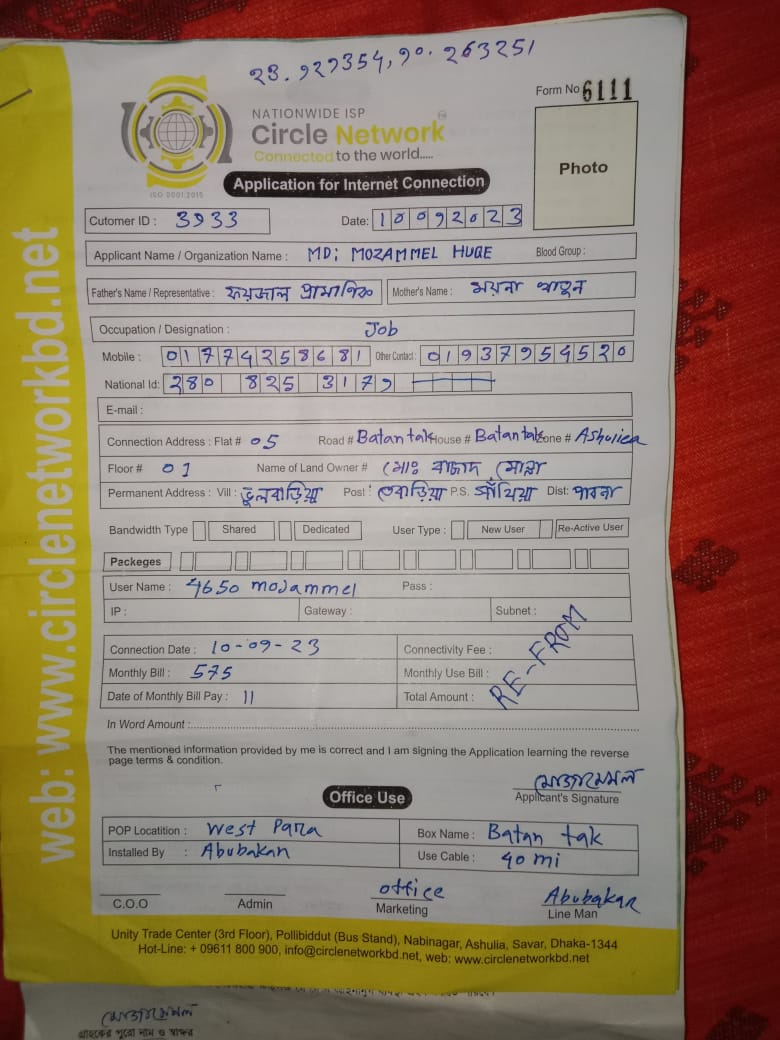 ২৩.৯২৭৩৫৪,৯০.২৬৩২৫১
Form No 6111
NATIONWIDE ISP
Circle Network
Connected to the world.....
ISO 9001:2015
Photo
Application for Internet Connection
Cutomer ID : 3933
Date: 10092023
Applicant Name / Organization Name : MD: MOZAMMEL HUQE Blood Group :
Father's Name / Representative : ফয়জাল প্রামাণিক Mother's Name : ময়না খাতুন
Occupation / Designation : Job
Mobile : 01774258681 Other Contact : 01937954520
National Id: 280 825 3179
E-mail :
Connection Address : Flat # 05 Road # Batan tak House # Batan tak Zone # Ashulica
Floor # 01 Name of Land Owner # মোঃ মোল্লা
Permanent Address : Vill : ভুলবাড়িয়া Post : P.S. সাঁথিয়া Dist: পাবনা
Bandwidth Type Shared Dedicated User Type : New User Re-Active User
Packeges
User Name : 4650 mojammel Pass :
IP : Gateway : Subnet :
Connection Date : 10-09-23 Connectivity Fee :
Monthly Bill : 575 Monthly Use Bill :
Date of Monthly Bill Pay : 11 Total Amount :
RE-FROM
In Word Amount :
The mentioned information provided by me is correct and I am signing the Application learning the reverse
page terms & condition.
মোজাম্মেল
Applicant's Signature
Office Use
POP Locatition : West Para Box Name : Batan tak
Installed By : Abubakan Use Cable : 40 mi
office Abubakar
C.O.O Admin Marketing Line Man
Unity Trade Center (3rd Floor), Pollibiddut (Bus Stand), Nabinagar, Ashulia, Savar, Dhaka-1344
Hot-Line: + 09611 800 900, info@circlenetworkbd.net, web: www.circlenetworkbd.net
web: www.circlenetworkbd.net
মোজাম্মেল
গ্রাহকের পুরো নাম ও স্বাক্ষর